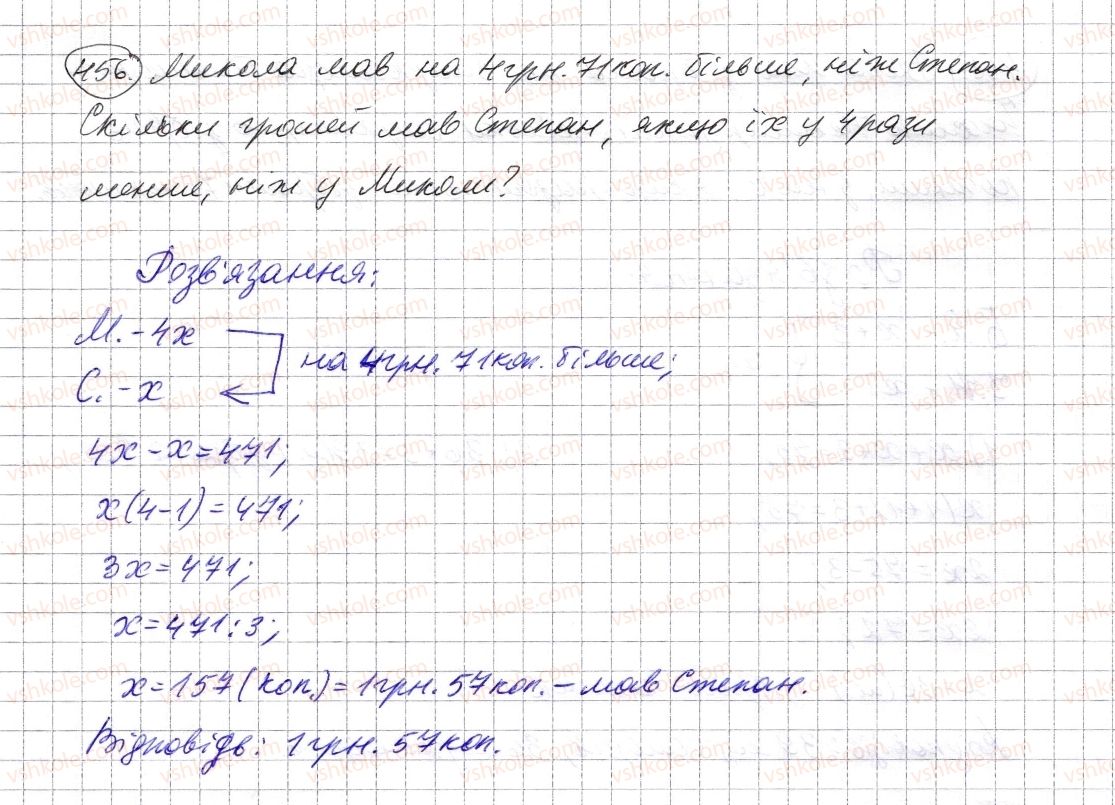 456. Микола мав на 4грн. 71коп. більше, ніж Степан.
Скільки грошей мав Степан, якщо їх у 4 рази
менше, ніж у Миколи?
Розв'язання:
М. - 4x
на 4грн. 71коп. більше;
С. - x
4x - x = 471;
x(4-1) = 471;
3x = 471;
x = 471:3;
x = 157 (коп.) = 1грн. 57коп. - мав Степан.
Відповідь: 1грн. 57коп.